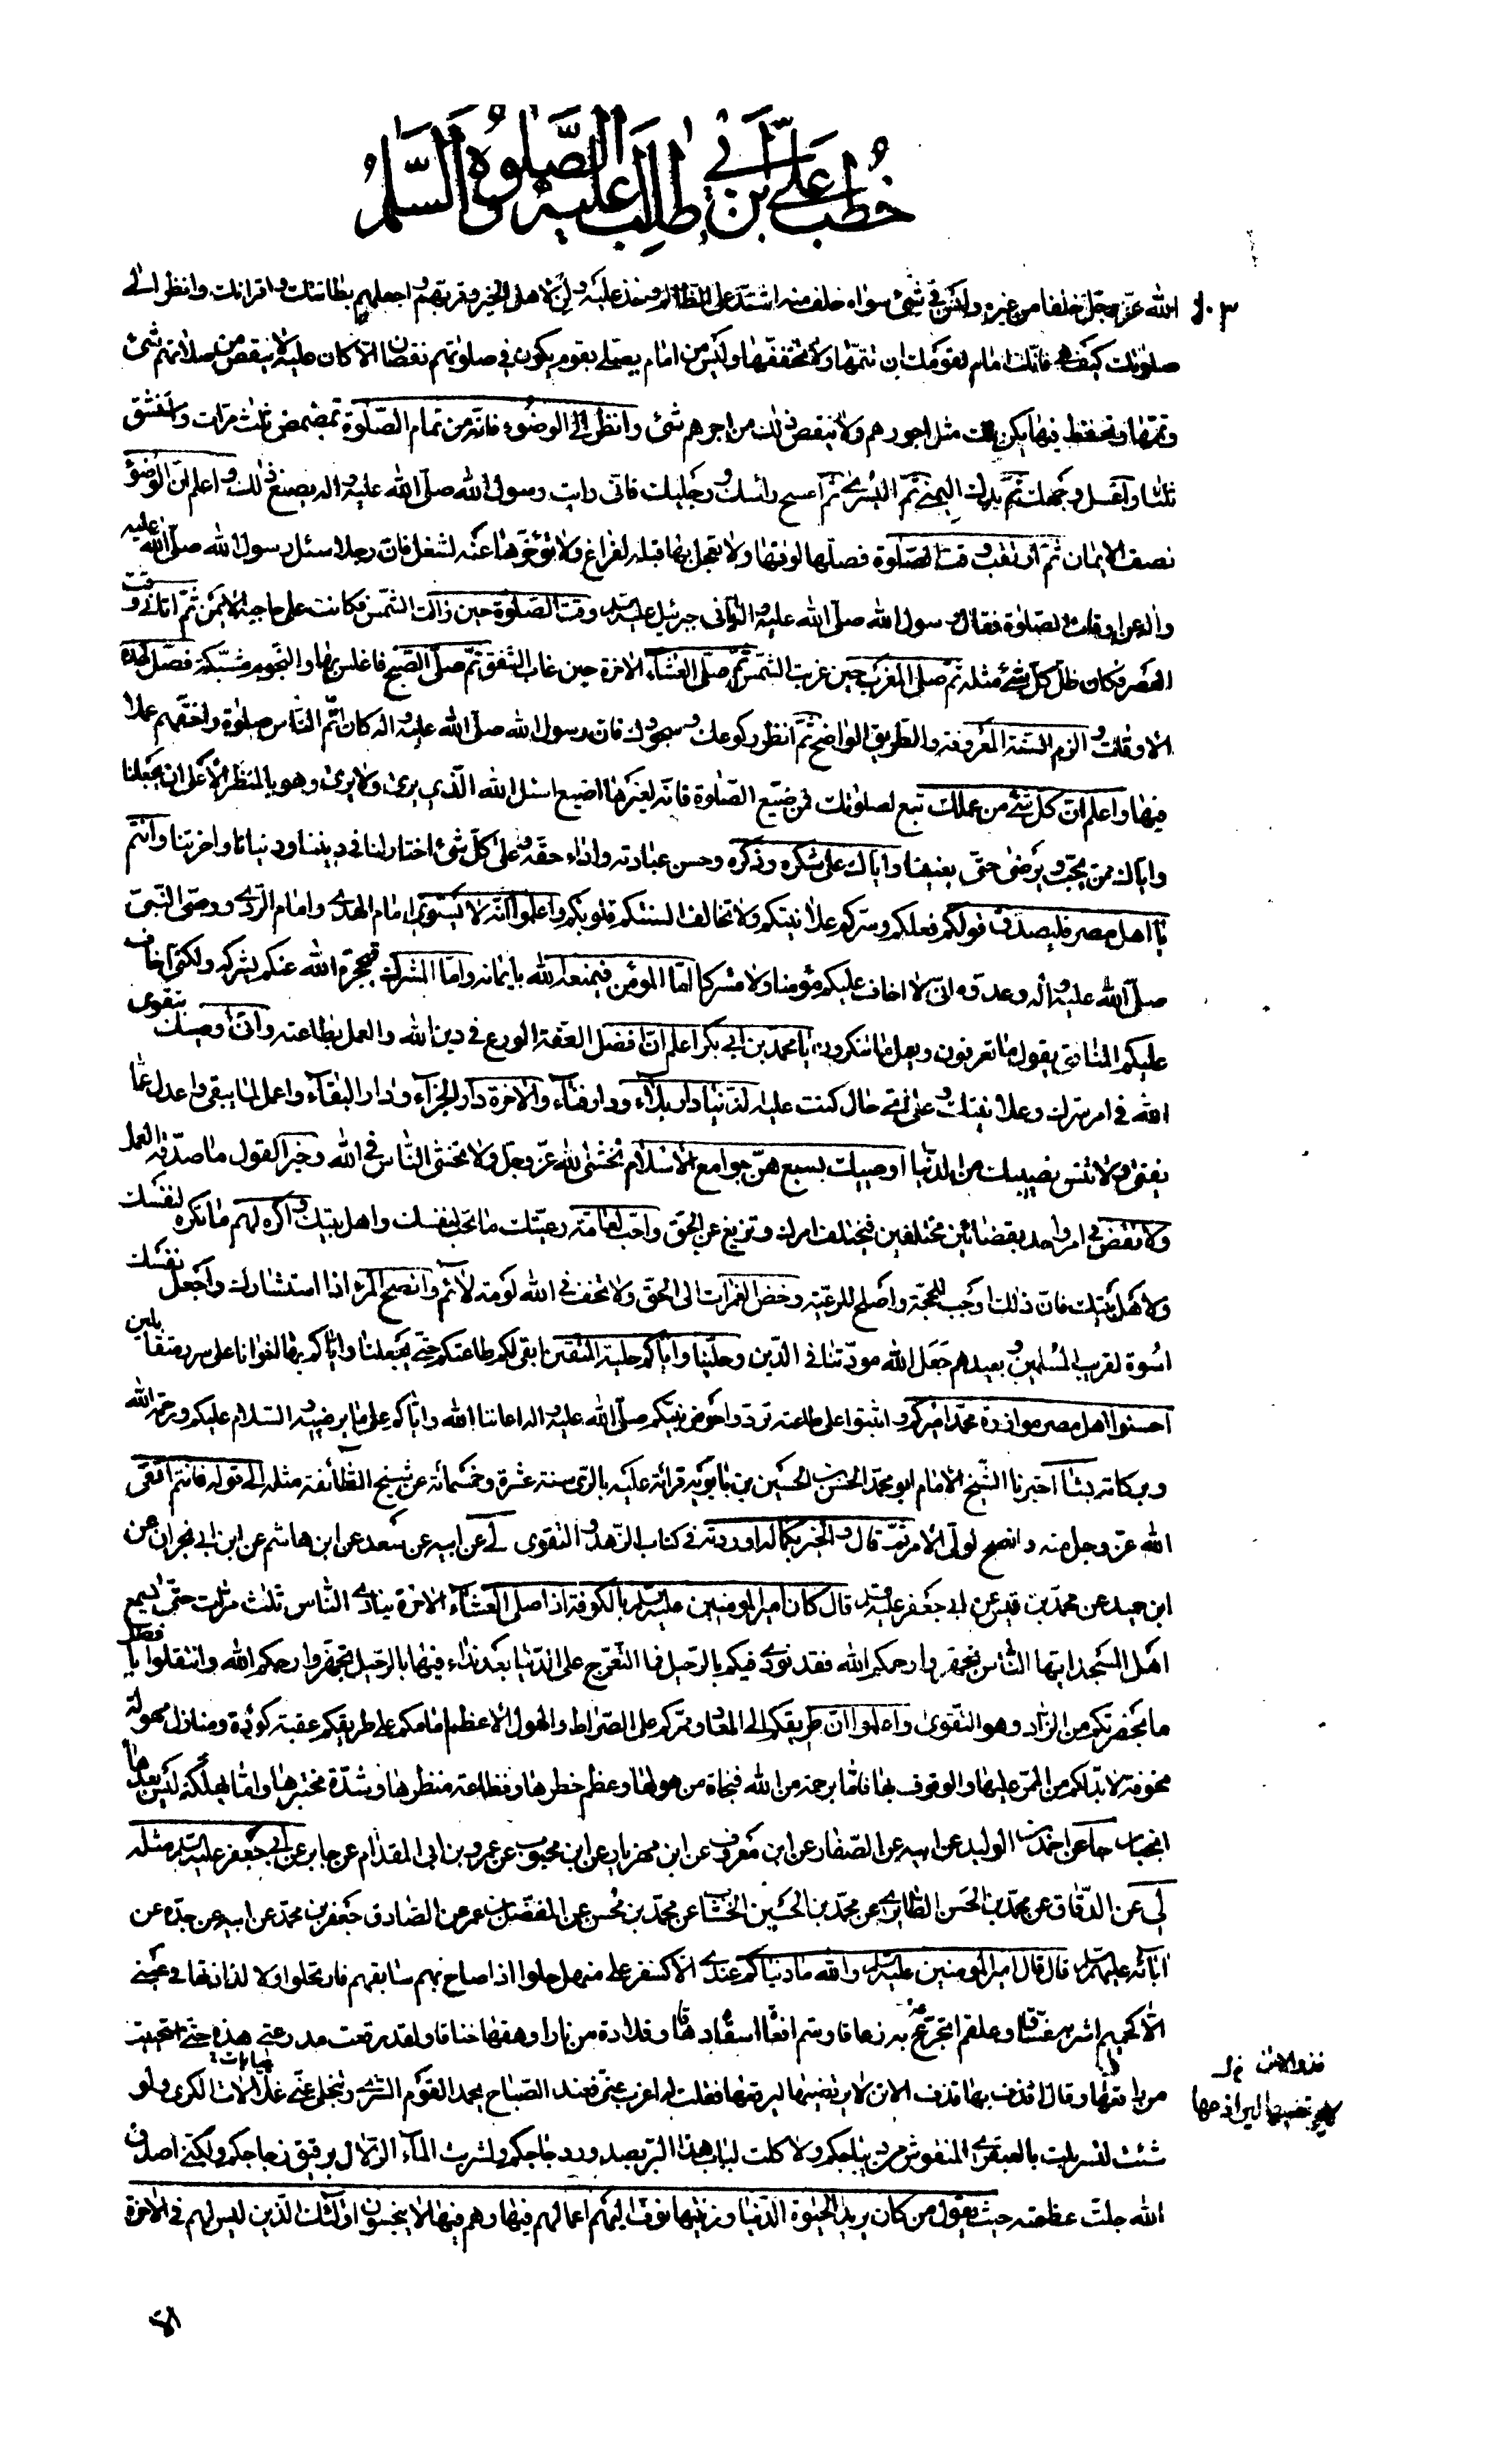 خُطَب عَلَيّ بْن اَبي طٰالِب عَلَيْهِ الصَّلٰوةُ وَالسَّلٰمُ
الله عزّ وجلّ خلفا من غيره وليس في شئ سواه خلف منه اشتدّ على الظالم وخذ عليه ولن لاهل الخير وقربهم واجعلهم بطانتك واقرانك وانظر الى
صلوتك كيف هي فانّك امام لقومك ان تتمّها ولا تخففها وليس من امام يصلى بقوم يكون في صلوتهم نقصان الّا كان عليه لا ينقص من صلاتهم شئ
وتمّمها وتحفّظ فيها يكن لك مثل اجورهم ولا ينقص ذلك من اجرهم شئ وانظر الى الوضوء فانّه من تمام الصّلوة تمضمض ثلث مرّات واستنشق
ثلثا واغسل وجهك ثمّ يدك اليمنى ثمّ اليسرى ثمّ امسح راسك ورجليك فانى رايت رسول الله صلّى الله عليه واله يصنع ذلك واعلم انّ الوضوء
نصف الايمان ثمّ ارتقب وقت الصّلوة فصلّها لوقتها ولا تعجل بها قبله لفراغ ولا تؤخّرها عنه لشغل فانّ رجلا سئل رسول الله صلّى الله عليه
واله عن اوقات الصّلوة فقال رسول الله صلّى الله عليه واله اتانى جبرئيل عليه السلم وقت الصّلوة حين زالت الشّمس فكانت على حاجبه الايمن ثمّ اتانى وقت
العصر فكان ظلّ كلّ شئ مثله ثمّ صلى المغرب حين غربت الشّمس ثمّ صلّى العشاء الاخرة حين غاب الشّفق ثمّ صلّى الصّبح فاغلس بها والنّجوم مشبّكة فصلّ لهذه
الاوقات والزم السّنّة المعروفة والطّريق الواضح ثمّ انظر ركوعك وسجودك فانّ رسول الله صلّى الله عليه واله كان اتمّ النّاس صلوة واخفّهم عملا
فيها واعلم انّ كلّ شئ من عملك تبع لصلوتك فمن ضيّع الصّلوة فانّه لغيرها اضيع اسئل الله الّذى يرى ولا يرى وهو بالمنظر الاعلى ان يجعلنا
وايّاك ممّن يحبّ ويرضى حتّى يعيننا وايّاك على شكره وذكره وحسن عبادته واداء حقّه وعلى كلّ شئ اختار لنا في ديننا ودنيانا واخرتنا وانتم
يا اهل مصر فليصدّق قولكم فعلكم وسرّكم علانيتكم ولا تخالف السنتكم قلوبكم واعلموا انّه لا يستوى امام الهدى وامام الرّدى ووصىّ النّبىّ
صلّى الله عليه واله وعدوّه انّى لا اخاف عليكم مؤمنا ولا مشركا امّا المؤمن فيمنعه الله بايمانه وامّا المشرك فيحجزه الله عنكم بشركه ولكنّى اخاف
عليكم المنافق يقول ما تعرفون ويعمل ما تنكرون يا محمّد بن ابى بكر اعلم انّ افضل العفّة الورع في دين الله والعمل بطاعته وانّى اوصيك بتقوى
الله في امر سرّك وعلانيتك وعلى اىّ حال كنت عليه الدّنيا دار بلاء ودار فناء والاخرة دار الجزاء ودار البقاء واعمل لما يبقى واعدل عمّا
يفنى ولا تنس نصيبك من الدّنيا اوصيك بسبع هنّ جوامع الاسلام تخشى الله عزّ وجلّ ولا تخشى النّاس في الله وخير القول ما صدّقه العمل
ولا تقض في امر واحد بقضائين مختلفين فيختلف امرك وتزيغ عن الحقّ واحبّ لعامّة رعيّتك ما تحبّ لنفسك واهل بيتك واكره لهم ما تكره لنفسك
ولاهل بيتك فانّ ذلك اوجب للحجّة واصلح للرعيّة وخض الغمرات الى الحقّ ولا تخف في الله لومة لائم وانصح المرء اذا استشارك واجعل نفسك
اسوة لقريب المسلمين وبعيدهم جعل الله مودّتنا في الدّين وحلّينا وايّاكم حلية المتّقين وابقى لكم طاعتكم حتّى يجعلنا وايّاكم بها اخوانا على سرر متقابلين
احسنوا اهل مصر موازرة محمّد اميركم واثبتوا على طاعته تردوا حوض نبيّكم صلّى الله عليه واله اعاننا الله وايّاكم على ما يرضيه والسّلام عليكم ورحمة الله
وبركاته بشا اخبرنا الشّيخ الامام ابو محمّد الحسن بن الحسين بن بابويه قرائة عليه بالرى سنة عشرة وخمسمائة عن شيخ الطّائفة مثله الى قوله فانتم اتقى
الله عزّ وجل منه وانصح لولىّ الامر ثمّ قال والخبر بكماله اوردته في كتاب الزّهد والتقوى لى عن ابيه عن سعد عن ابن هاشم عن ابن ابى نجران عن
ابن حميد عن محمد بن قيس عن ابى جعفر عليه السلم قال كان امير المومنين عليه السلم بالكوفة اذا صلى العشاء الاخرة ينادى النّاس ثلث مرّات حتّى يسمع
اهل المسجد ايها النّاس تجهزوا رحمكم الله فقد نودى فيكم بالرّحيل فما التّعرّج على الدّنيا بعد نداء فيها بالرّحيل تجهّزوا رحمكم الله وانتقلوا بافضل
ما بحضرتكم من الزّاد وهو التقوى واعلموا انّ طريقكم الى المعاد وممرّكم على الصّراط والهول الاعظم امامكم على طريقكم عقبة كؤدة ومنازل مهولة
مخوفة لا بدّ لكم من الممرّ عليها والوقوف بها فامّا برحمة من الله فنجاة من هولها وعظم خطرها وفظاعة منظرها وشدّة مختبرها وامّا بهلكة ليس بعدها
انجبار جا عن احمد بن الوليد عن ابيه عن الصّفّار عن ابن معروف عن ابن مهزيار عن ابن محبوب عن عمرو بن ابى المقدام عن جابر عن ابى جعفر عليه السلم مثله
لى عن الدّقّاق عن محمّد بن الحسن الطّارى عن محمّد بن الحسين الخشّاب عن محمّد بن محسن عن المفضّل بن عمر عن الصّادق جعفر بن محمّد عن ابيه عن جدّه عن
ابائه عليهم السلم قال قال امير المومنين عليه السلم والله ما دنياكم عندى الّا كسفر على منهل حلوا اذ صاح بهم سائقهم فارتحلوا ولا لذاذتها في عينى
الّا كحميم اشربه غسّاقا وعلقم اتجرّع به زعاقا وسمّ افعا اسقاه دهاقا وقلادة من نار اوهقها خناقا ولقد رقعت مدرعتى هذه حتّى استحييت
من راقعها وقال اقذف بها قذف الاتن لا يرتضيها ليرقعها فقلت له اعزب عنّى فعند الصّباح يحمد القوم السّرى وتنجلى عنّى غلالات الكرى ولو
شئت لتسربلت بالعبقرى المنقوش من ديباجكم ولاكلت لباب هذا البرّ بصدور دجاجكم ولشربت الماء الزّلال برقيق زجاجكم ولكنّى اصدّق
الله جلّت عظمته حيث يقول من كان يريد الحيوة الدّنيا وزينتها نوفّ اليهم اعمالهم فيها وهم فيها لا يبخسون اولئك الّذين ليس لهم في الاخرة
الّا